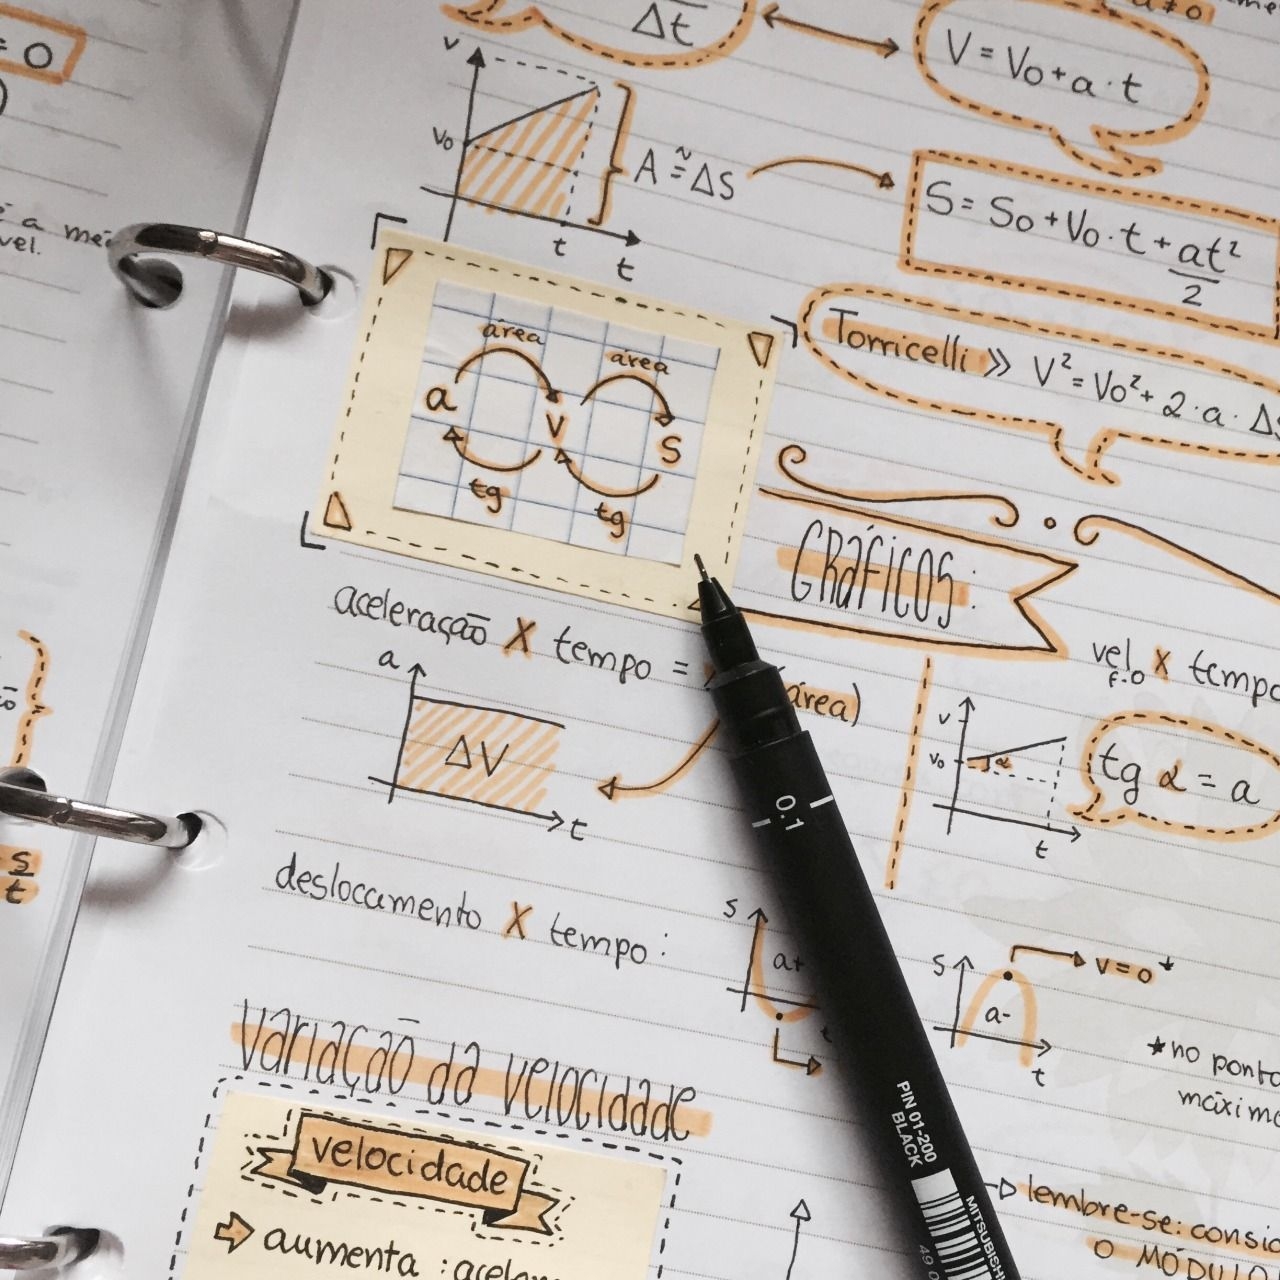 = 0
Δt
V = Vo + a · t
V
Vo
A ≅ ΔS
t
t
S = So + Vo · t + at²/2
é a
vel.
Torricelli >> V² = Vo² + 2 · a · ΔS
área
área
a
V
S
tg
tg
GRÁFICOS:
aceleração X tempo =
área)
a
ΔV
t
vel X tempo
f.0
V
Vo
α
t
tg α = a
s
t
deslocamento X tempo:
S
a+
t
S
a-
t
V = 0 *
*no ponto
máximo
variação da velocidade
velocidade
aumenta :
lembre-se:
O MÓDULO
0.1
PIN 01-200
BLACK
MITSUBISHI